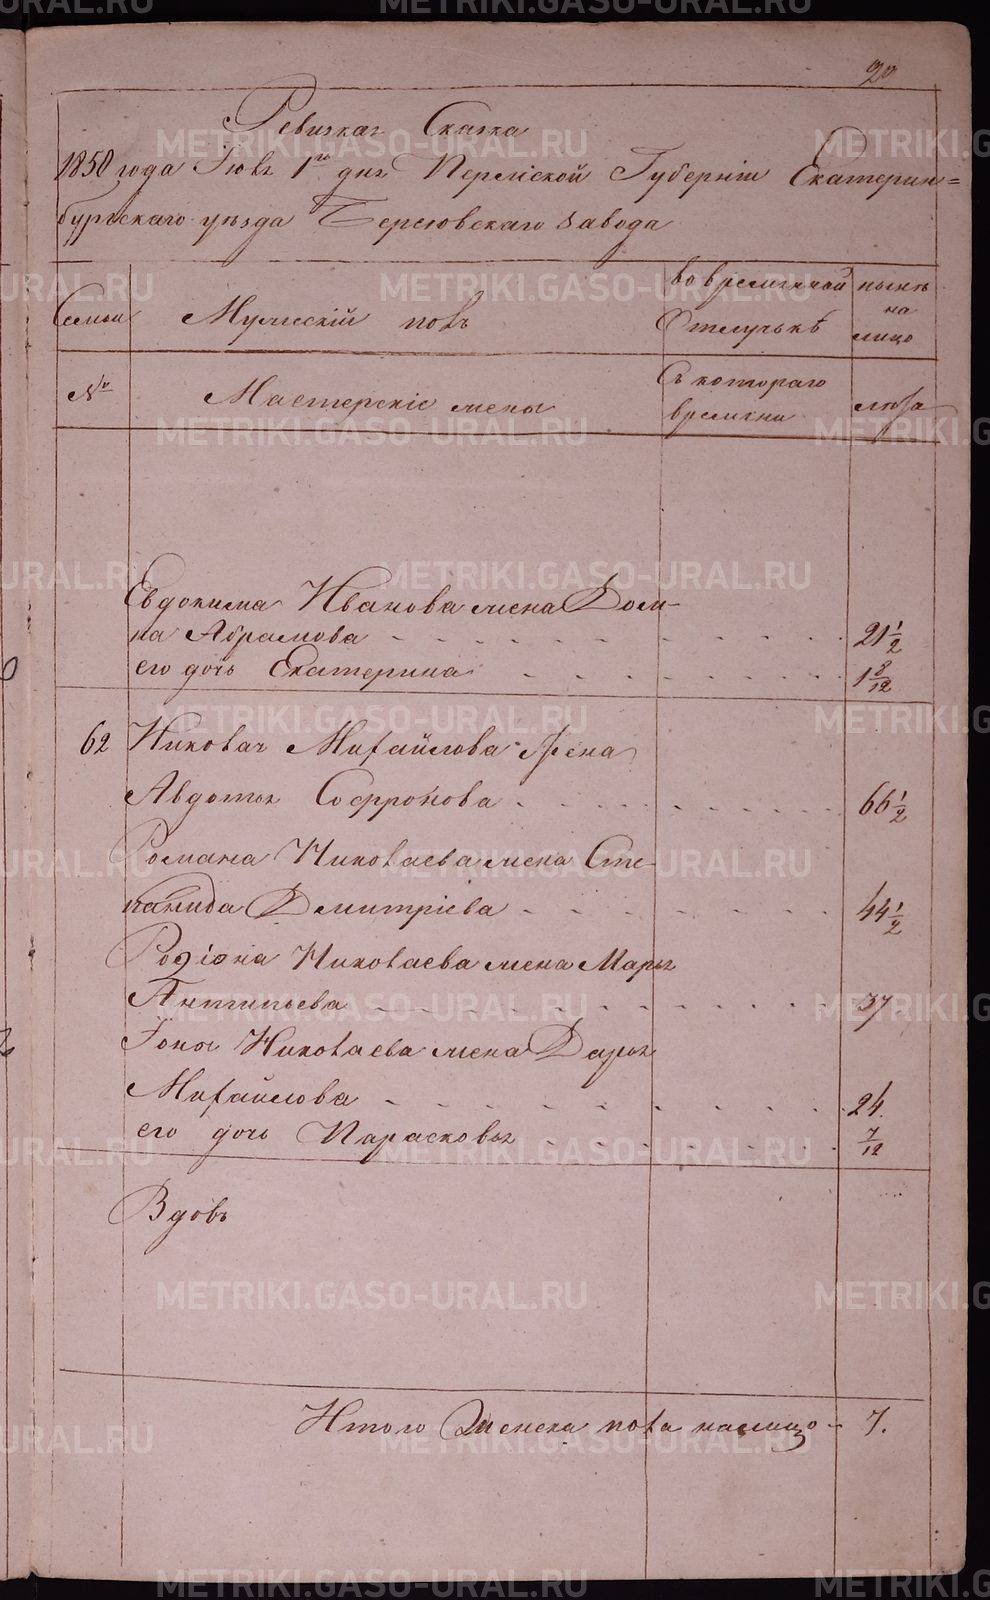 20
Ревизкаг Сказка
1850 года Іюнг 1го днг Пермской Губерніи Екатерин=
бургскаго уѣзда Березовскаго завода
Семьи
Мужескій полъ
во временной
Отлучкѣ
нынѣ
на
лицо
№
Мастерскіе жены
Съ котораго
времени
лѣта
Евдокима Иванова жена Дом-
на Абрамова 21 1/2
его дочь Екатерина 1 8/12
62 Николаг Михайлова жена
Авдотьг Софронова 66 1/2
Романа Николаева жена Сте-
панида Дмитріева 44 1/2
Родіона Николаева жена Марьг
Антипьева 37
Іоны Николаева жена Дарьг
Михайлова 24.
его дочь Парасковьг 7/12
Вдовъ
Итого Женска пола налицо - 7.
METRIKI.GASO-URAL.RU